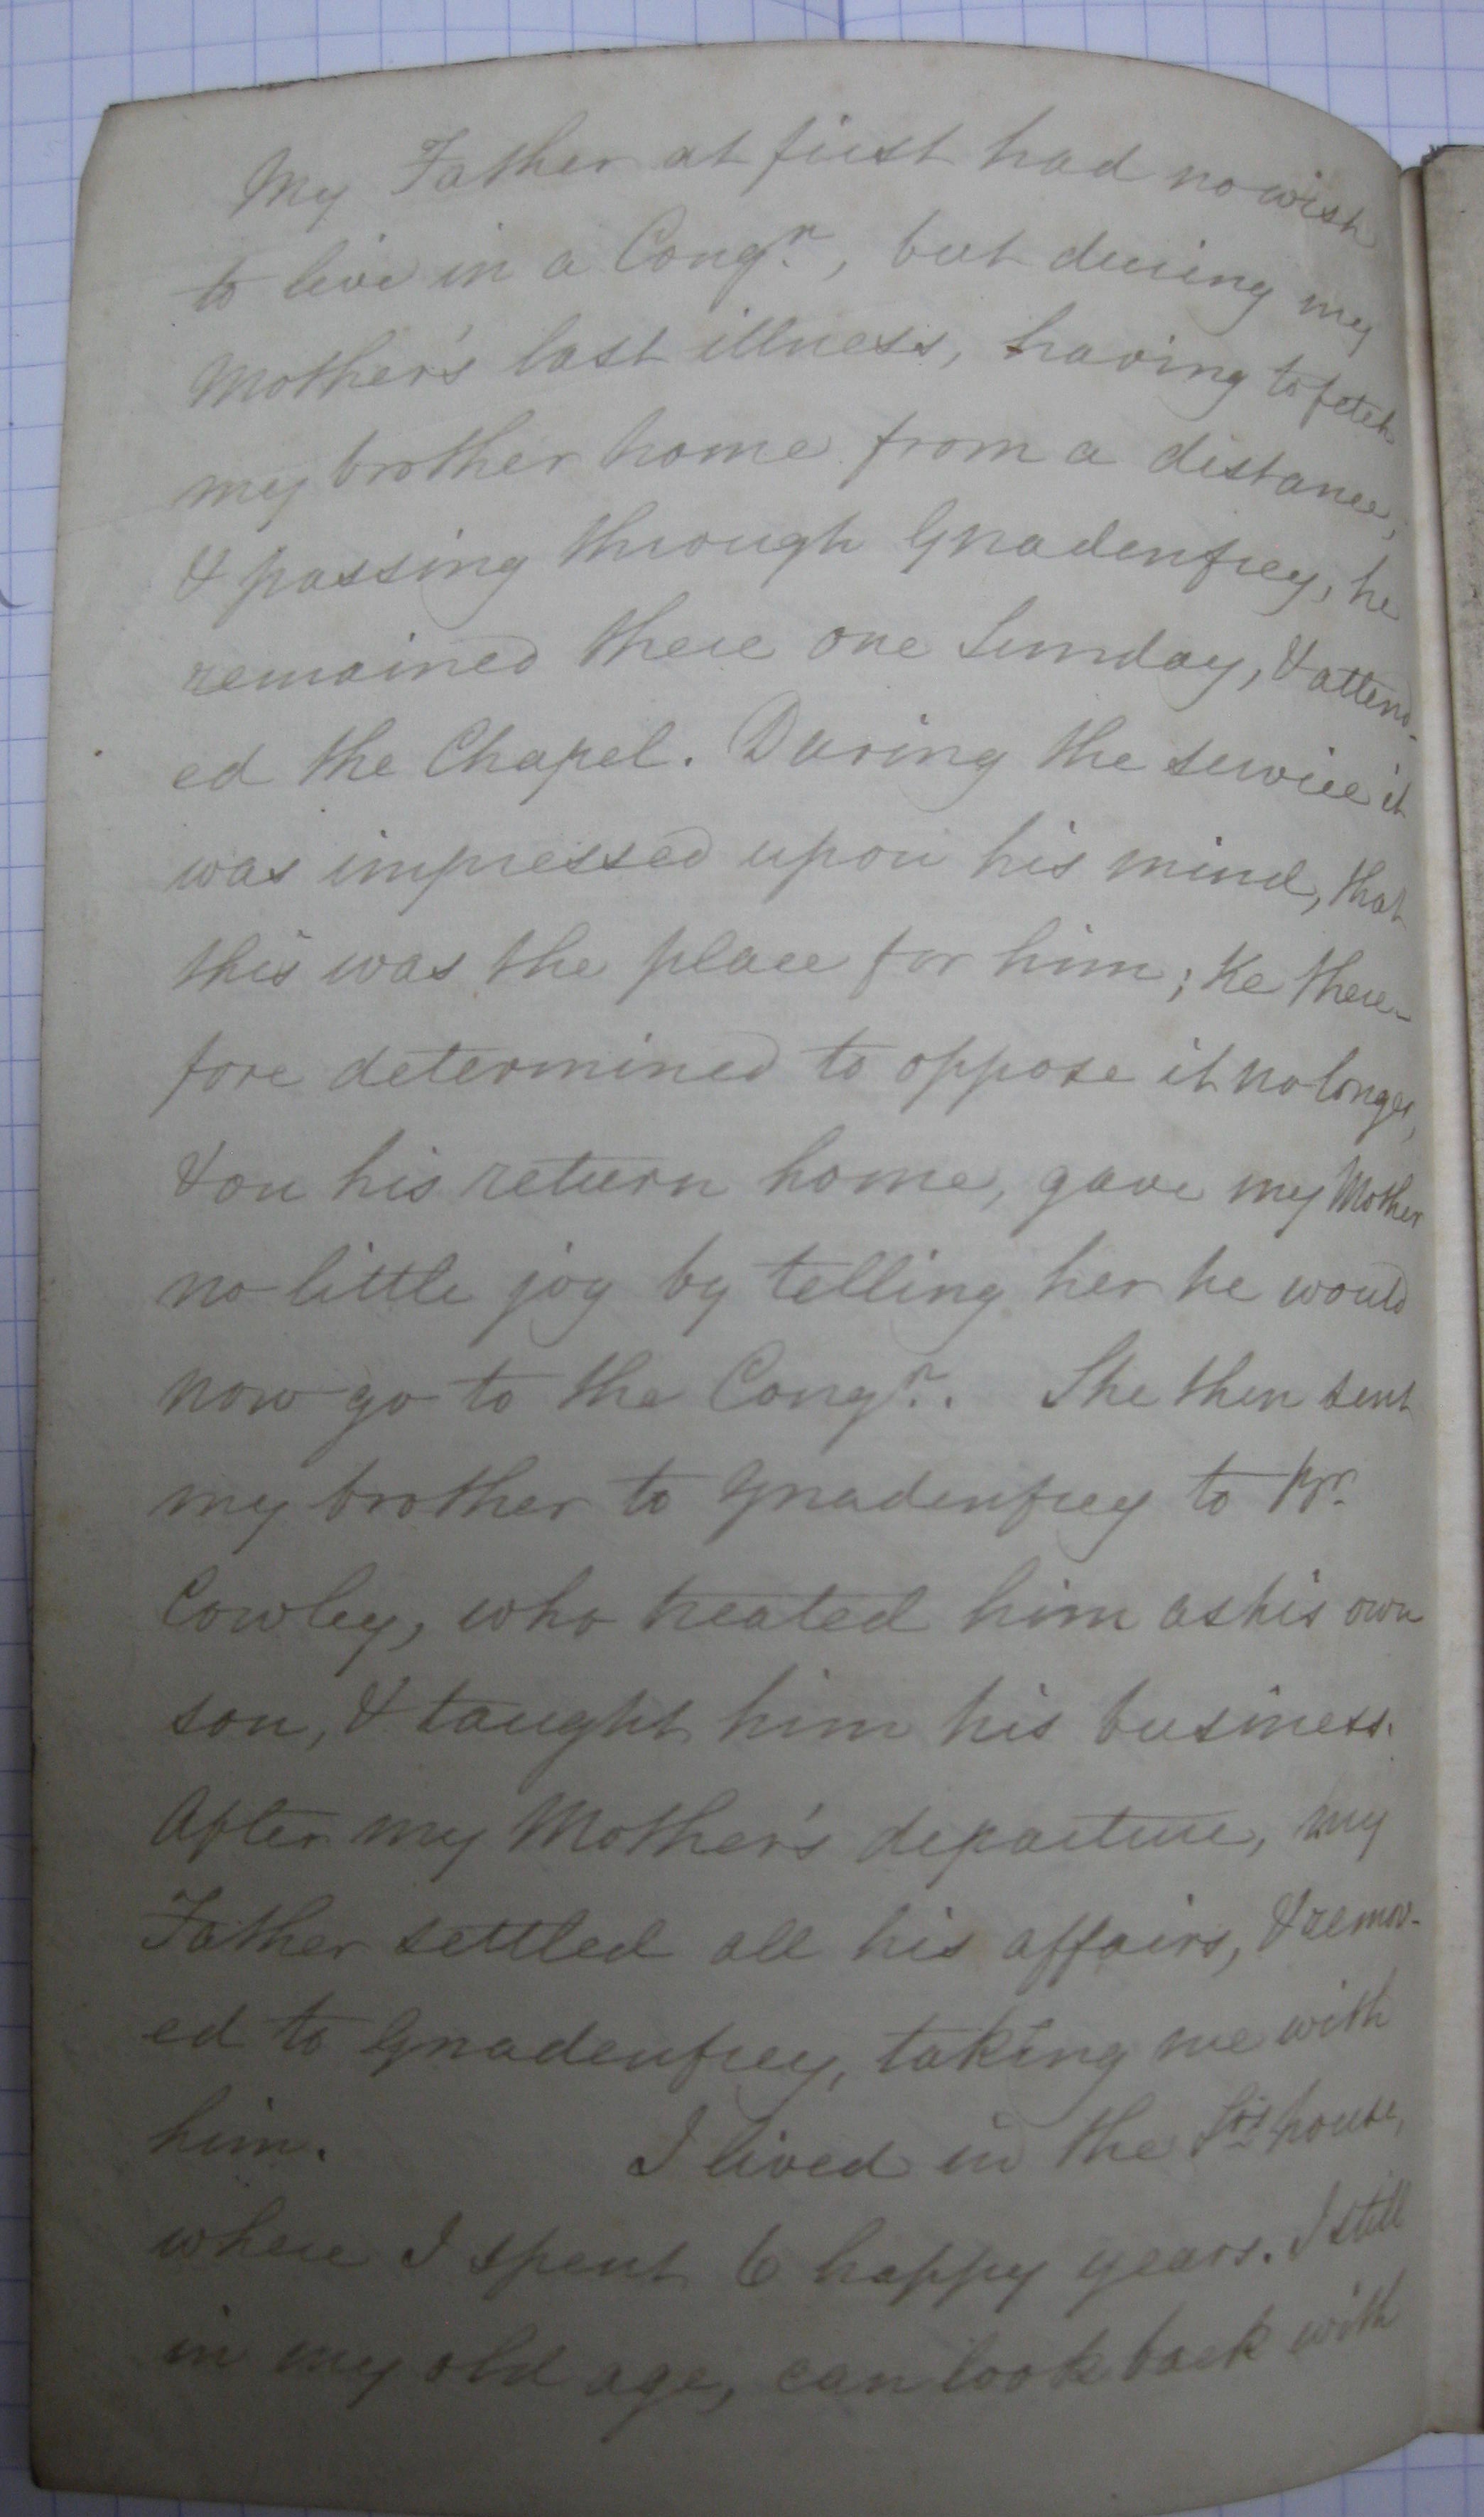 My Father at first had no wish
to live in a Congn., but during my
Mother's last illness, having to fetch
my brother home from a distance,
& passing through Gnadenfrey, he
remained there one Sunday, & attend-
ed the Chapel. During the service it
was impressed upon his mind, that
this was the place for him; He there-
fore determined to oppose it no longer,
& on his return home, gave my Mother
no little joy by telling her he would
now go to the Congn.. She then sent
my brother to Gnadenfrey to Br.
Cowley, who treated him as his own
son, & taught him his business.
After my Mother's departure, my
Father settled all his affairs, & remov-
ed to Gnadenfrey, taking me with
him. I lived in the Srs house,
where I spent 6 happy years. I still
in my old age, can look back with